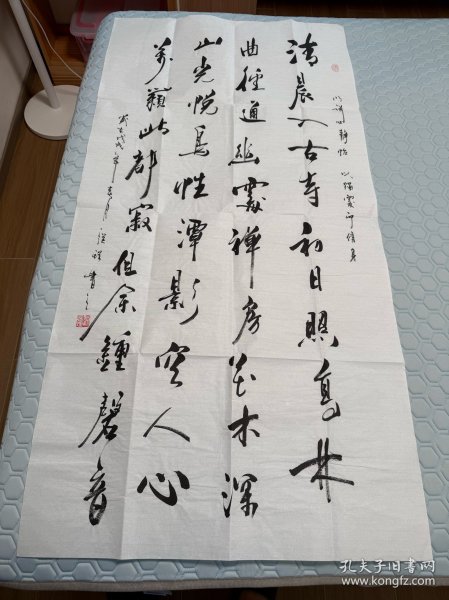 清晨入古寺初日照高林
曲徑通幽處禪房花木深
山光悅鳥性潭影空人心
萬籟此都寂但余鐘磬音
歲在戊戌年
書之
孔夫子旧书网
www.kongfz.com